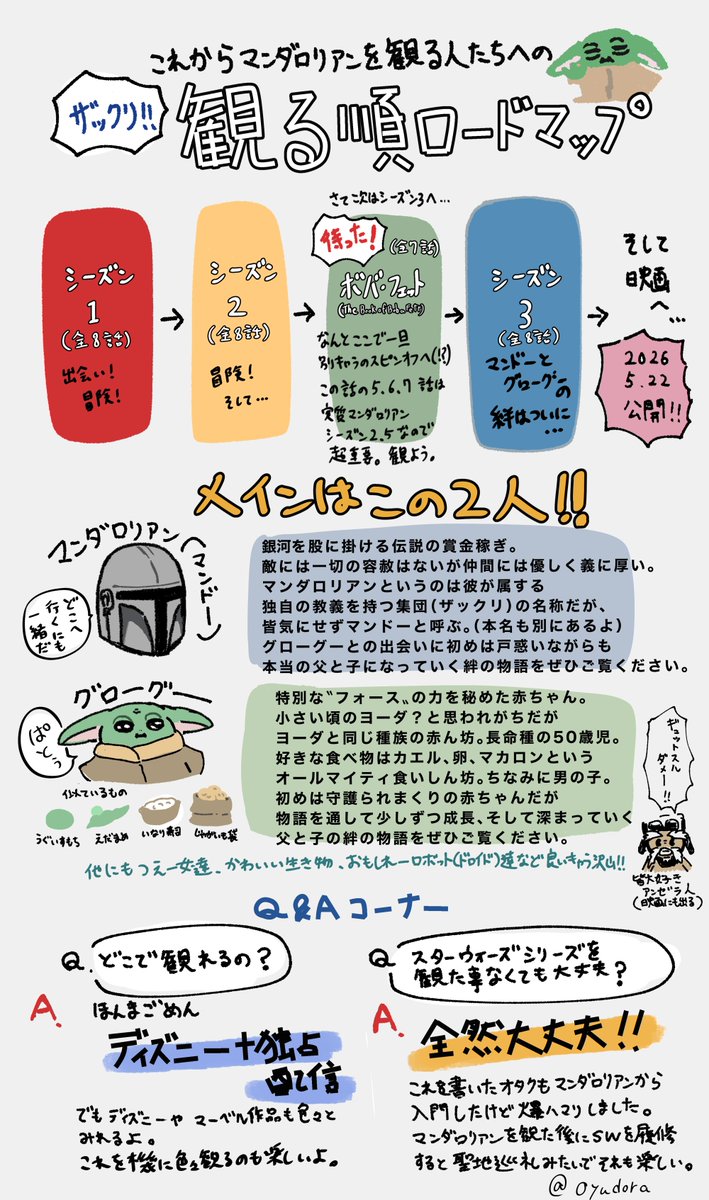 これからマンダロリアンを観る人たちへの
ザックリ!!
観る順ロードマップ
さて次はシーズン3へ…
シーズン
1
(全8話)
出会い!
冒険!
シーズン
2
(全8話)
冒険!
そして…
待った!
(全7話)
ボバ・フェット
(The Book of Boba Fett)
なんとここで一旦
別キャラのスピンオフへ(!?)
この話の5.6.7話は
実質マンダロリアン
シーズン2.5なので
超重要。観よう。
シーズン
3
(全8話)
マンドーと
グローグーの
絆はついに…
そして
映画
へ…
2026
5.22
公開!!
メインはこの2人!!
マンダロリアン(マンドー)
どこへ
行くにも
一緒だ
銀河を股に掛ける伝説の賞金稼ぎ。
敵には一切の容赦はないが仲間には優しく義に厚い。
マンダロリアンというのは彼が属する
独自の教義を持つ集団(ザックリ)の名称だが、
皆気にせずマンドーと呼ぶ。(本名も別にあるよ)
グローグーとの出会いに初めは戸惑いながらも
本当の父と子になっていく絆の物語をぜひご覧ください。
グローグー
ぱとぅ
似ているもの
うぐいすもち
えだまめ
いなり寿司
じゃがいも袋
特別な〝フォース〟の力を秘めた赤ちゃん。
小さい頃のヨーダ?と思われがちだが
ヨーダと同じ種族の赤ん坊。長命種の50歳児。
好きな食べ物はカエル、卵、マカロンという
オールマイティ食いしん坊。ちなみに男の子。
初めは守護られまくりの赤ちゃんだが
物語を通して少しずつ成長、そして深まっていく
父と子の絆の物語をぜひご覧ください。
ギュットスル
ダメー!!
皆大好き
アンゼラ人
(映画にも出る)
他にもつえー女達、かわいい生き物、おもしれーロボット(ドロイド)達など良いキャラ沢山!!
Q&Aコーナー
Q.どこで観れるの?
A.
ほんまごめん
ディズニー+独占
配信
でもディズニーや マーベル作品も色々と
みれるよ。
これを機に色々観るのも楽しいよ。
Q スターウォーズシリーズを
観た事なくても大丈夫?
A.
全然大丈夫!!
これを書いたオタクもマンダロリアンから
入門したけど爆ハマリしました。
マンダロリアンを観た後にSWを履修
すると聖地巡礼みたいでそれも楽しい。
@oyudora